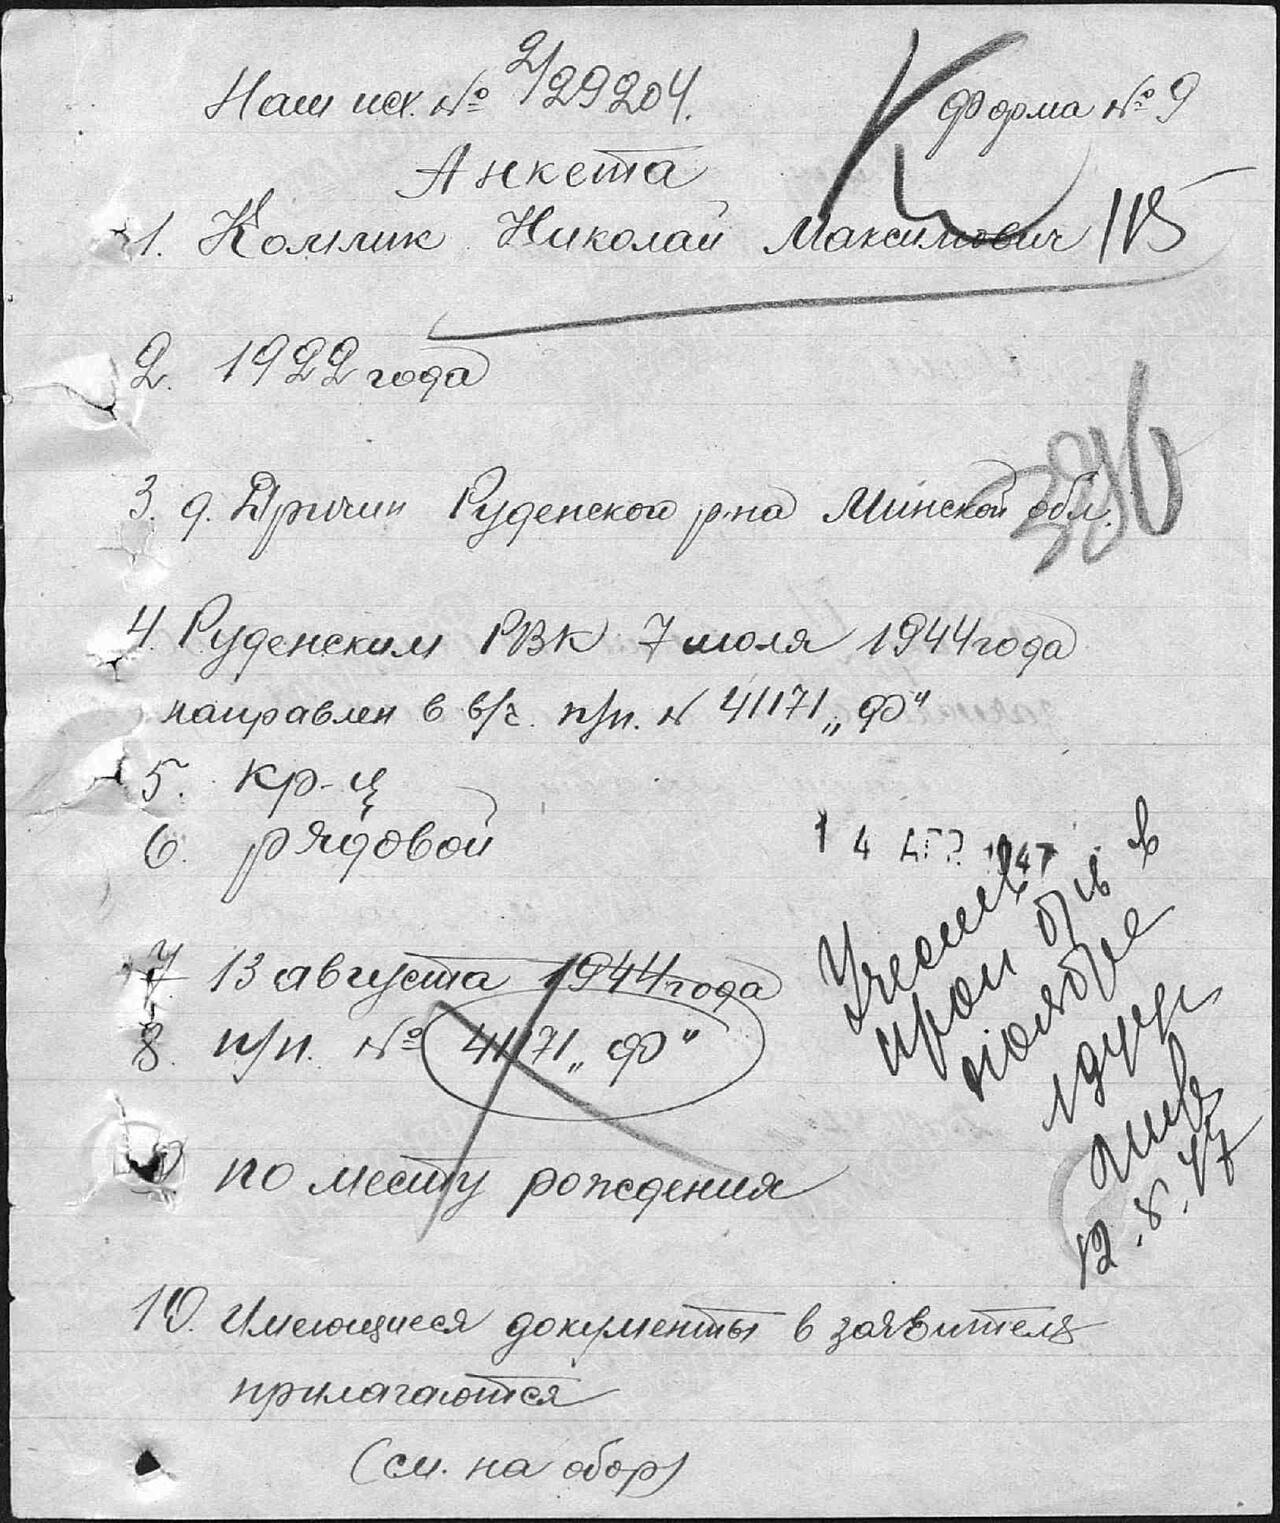 Наш исх. № 2/29204.
Форма № 9
К
Анкета
1. Комлик Николай Максимович
2. 1922 года
3. д. Дричин Руденского р-на Минской обл.
4. Руденским РВК 7 июля 1944 года
направлен в в/ч. п/п. № 41171 „Ф"
5. кр-ц
6. рядовой
1 4 1947
7 13 августа 1944 года
8. п/п. № 41171 „Ф"
9 по месту рождения
12.8.47
10. Имеющиеся документы в заявителя
прилагаются
(см. на обор)